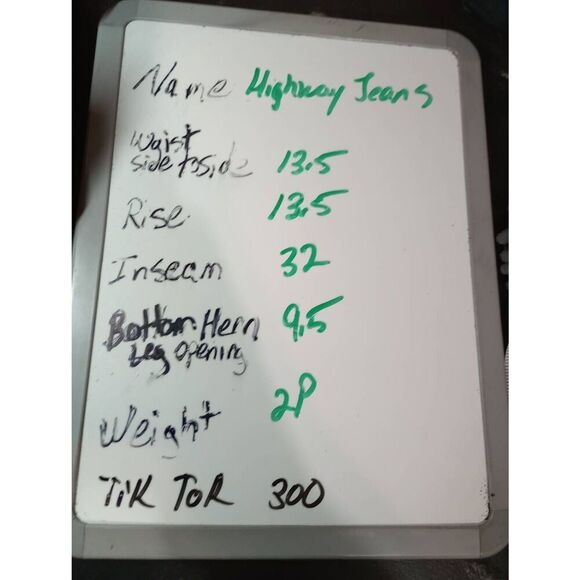 Name Highway Jeans
Waist
side to side 13.5
Rise 13.5
Inseam 32
Bottom Hem 9.5
Leg Opening
Weight 2P
TiK ToK 300